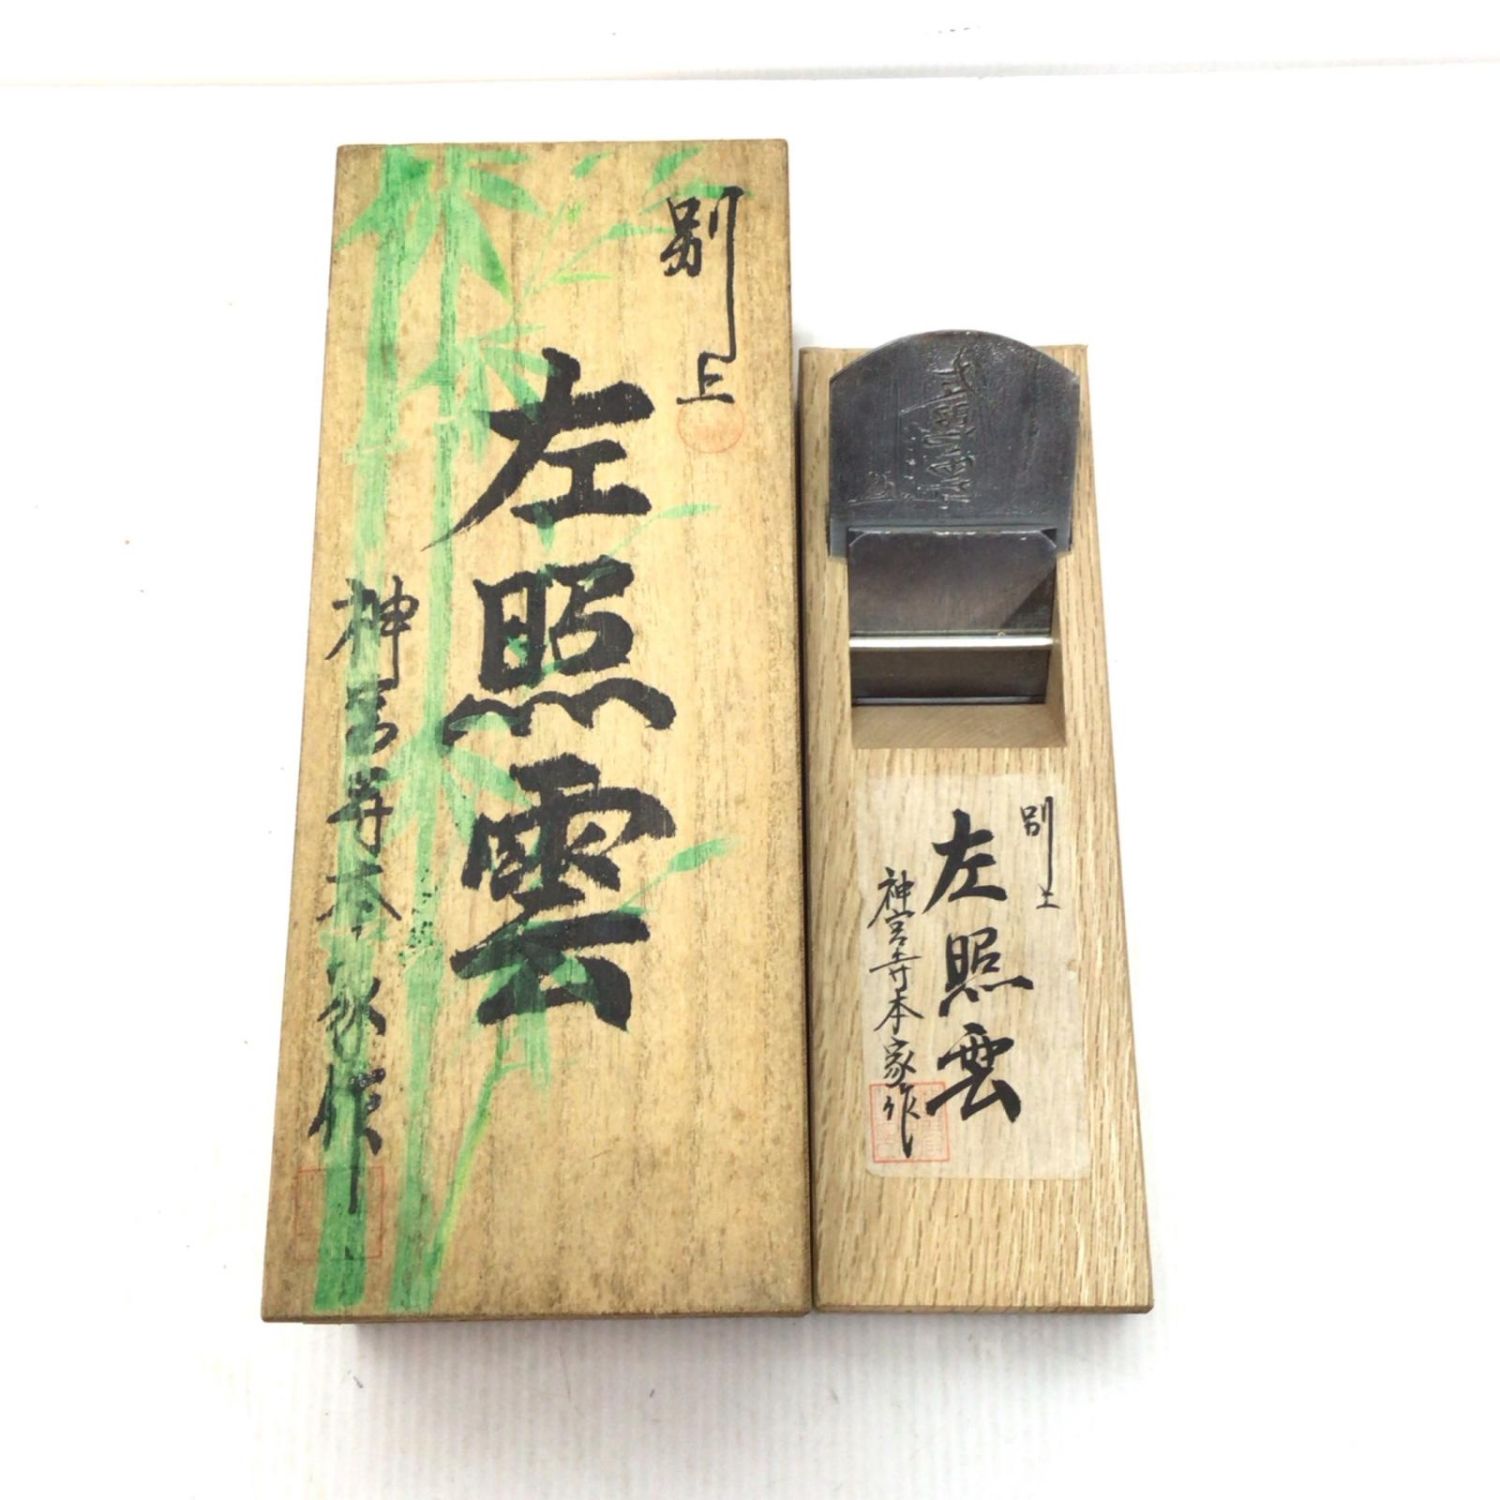 別上
左照雲
神宮寺本家作
別上
左照雲
神宮寺本家作